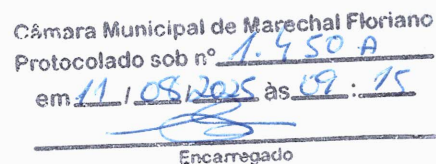 Câmara Municipal de Marechal Floriano
Protocolado sob nº 1.450 A
em 11 / 08 / 2025 às 09 : 15
Encarregado